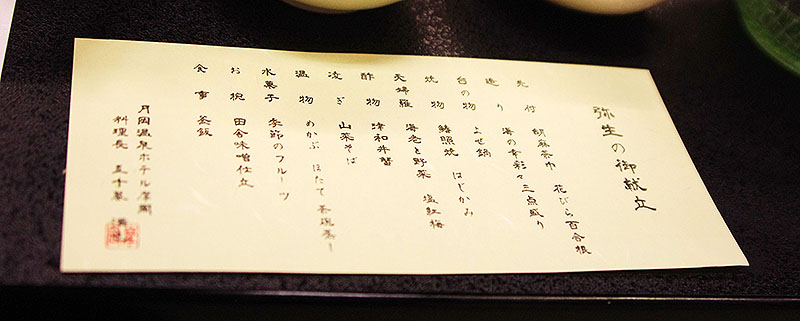 弥生の御献立
先付 胡麻茶巾 花びら百合根
造り 海の幸彩々三点盛り
台の物 よせ鍋
焼物 鰆照焼 はじかみ
天婦羅 海老と野菜 塩紅梅
酢物 津和井蟹
凌ぎ 山菜そば
温物 めかぶ ほたて 茶碗蒸し
水菓子 季節のフルーツ
お椀 田舎味噌仕立
食事 釜飯
月岡温泉ホテル摩周
料理長 五十嵐